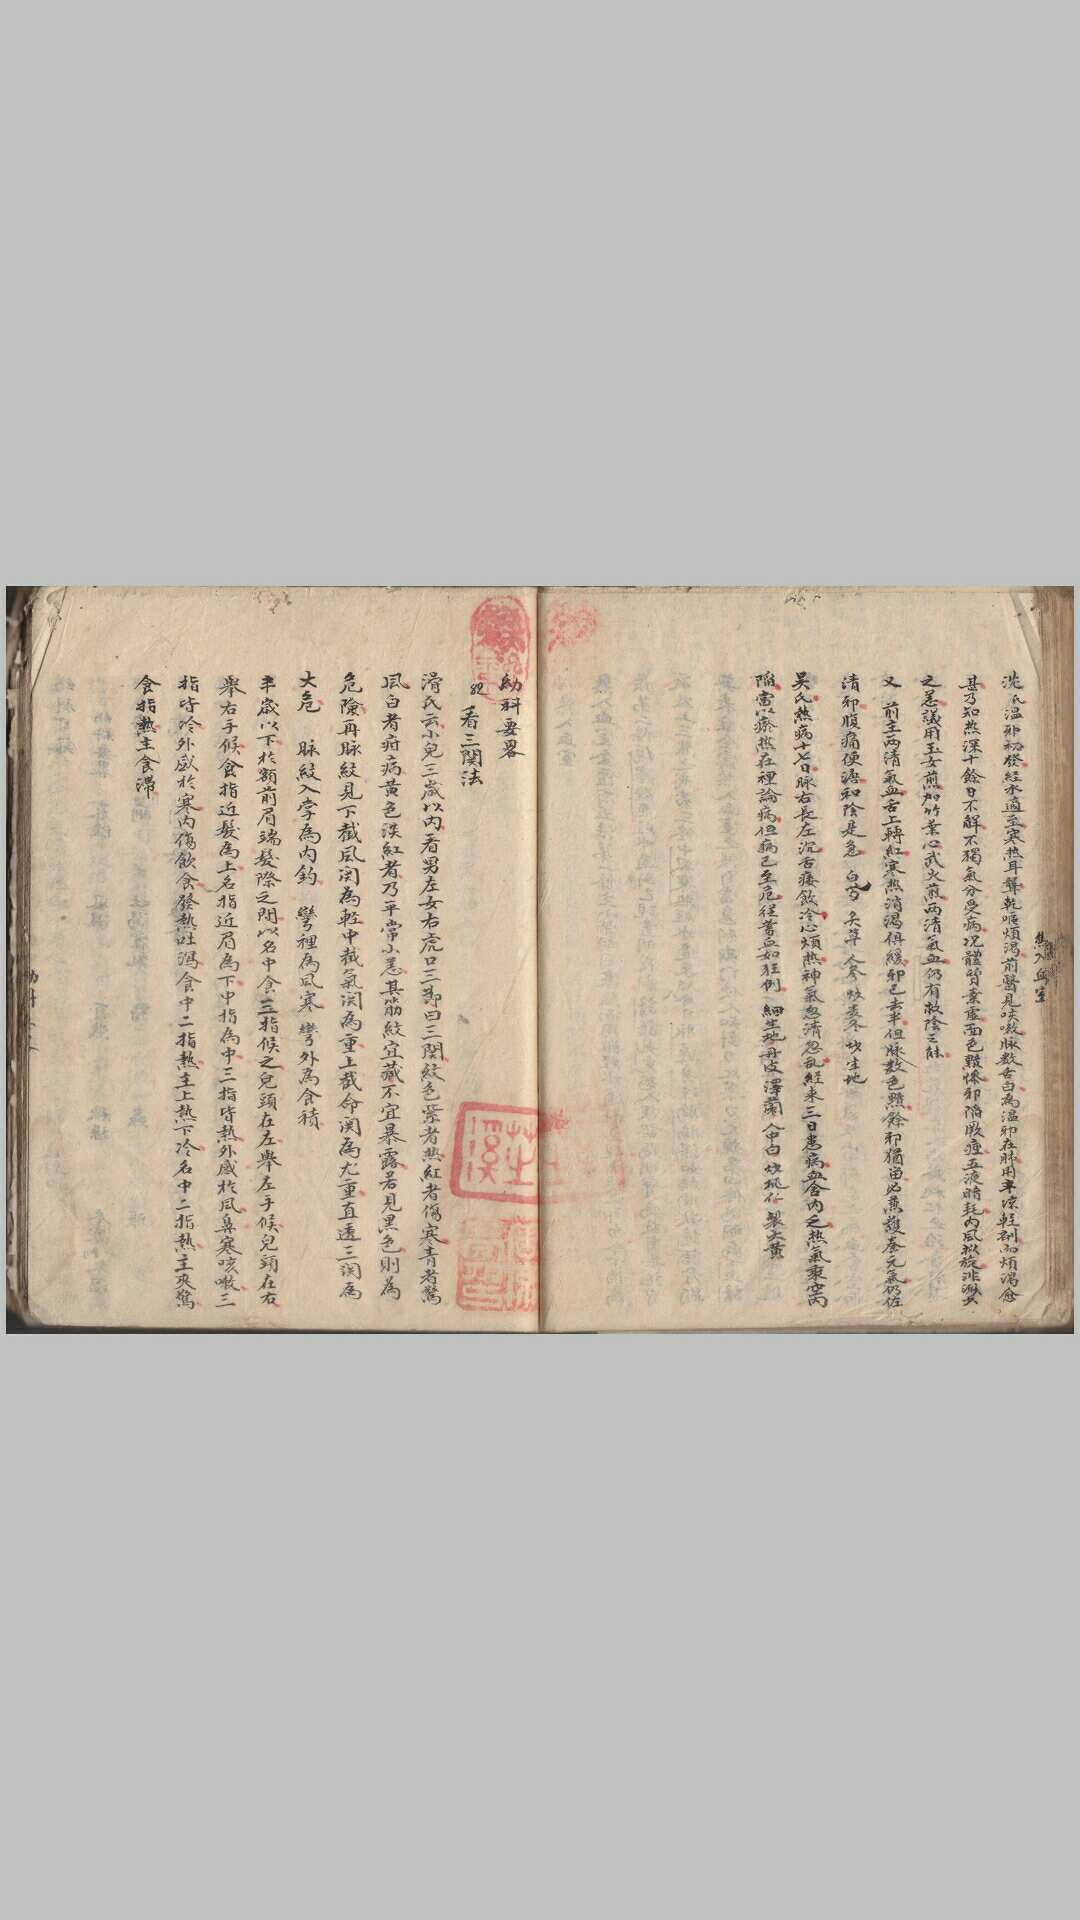 熱入血室
沈氏温邪初發經水適至寒熱耳聾乾嘔煩渴前醫見咳嗽脉数舌白為温邪在肺用辛凉輕劑而煩渴愈
甚乃知热深十餘日不解不獨氣分受病况體質素虚面色黯惨邪陷厥痙五液暗耗内風掀旋非淺小
之恙議用玉女煎加竹葉心武火煎两清氣血仍有救陰之能
又　前主两清氣血舌上轉紅寒热消渴俱緩邪已去半但脉数色黯餘邪猶留必兼護養元氣仍佐
清邪腹痛便溏和陰是急　白芍　炙草　人參　炒麦冬　炒生地
吴氏热病十七日脉右長左沉舌痿飲冷心煩热神氣忽清忽乱經来三日患病血舍内之热氣乘空内
陷當以瘀热在裡論病但病已至危從蓄血如狂例　細生地　丹皮　澤蘭　人中白　炒桃仁　製大黄
幼科要畧
看三関法
滑氏云小兒三歲以内看男左女右虎口三節曰三関紋色紫者热紅者傷寒青者驚
風白者疳病黄色淡紅者乃平常小恙其筋紋宜藏不宜暴露若見黒色則為
危險再脉紋見下截風関為輕中截氣関為重上截命関為尤重直透三関為
大危　脉紋入掌為内鈎　彎裡為風寒　彎外為食積
半歲以下於額前眉端髮際之間以名中食三指候之兒頭在左舉左手候兒頭在右
舉右手候食指近髮為上名指近眉為下中指為中三指皆熱外感於風鼻寒咳嗽三
指皆冷外感於寒内傷飲食發熱吐瀉食中二指熱主上热下冷名中二指熱主夾驚
食指熱主食滯